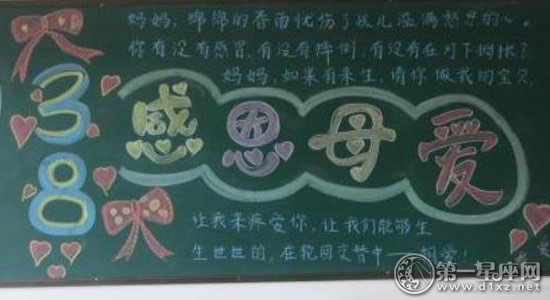 妈妈,绵绵的春雨忧伤了孩儿溢满感恩的心。
你有没有感冒,有没有摔倒,有没有在灯下
妈妈,如果有来生,请你做我的宝贝,
38
感恩母爱
让我来疼爱你,让我们能够生
生世世的,在轮回交替中——相爱!
第一星座网
www.d1xz.net